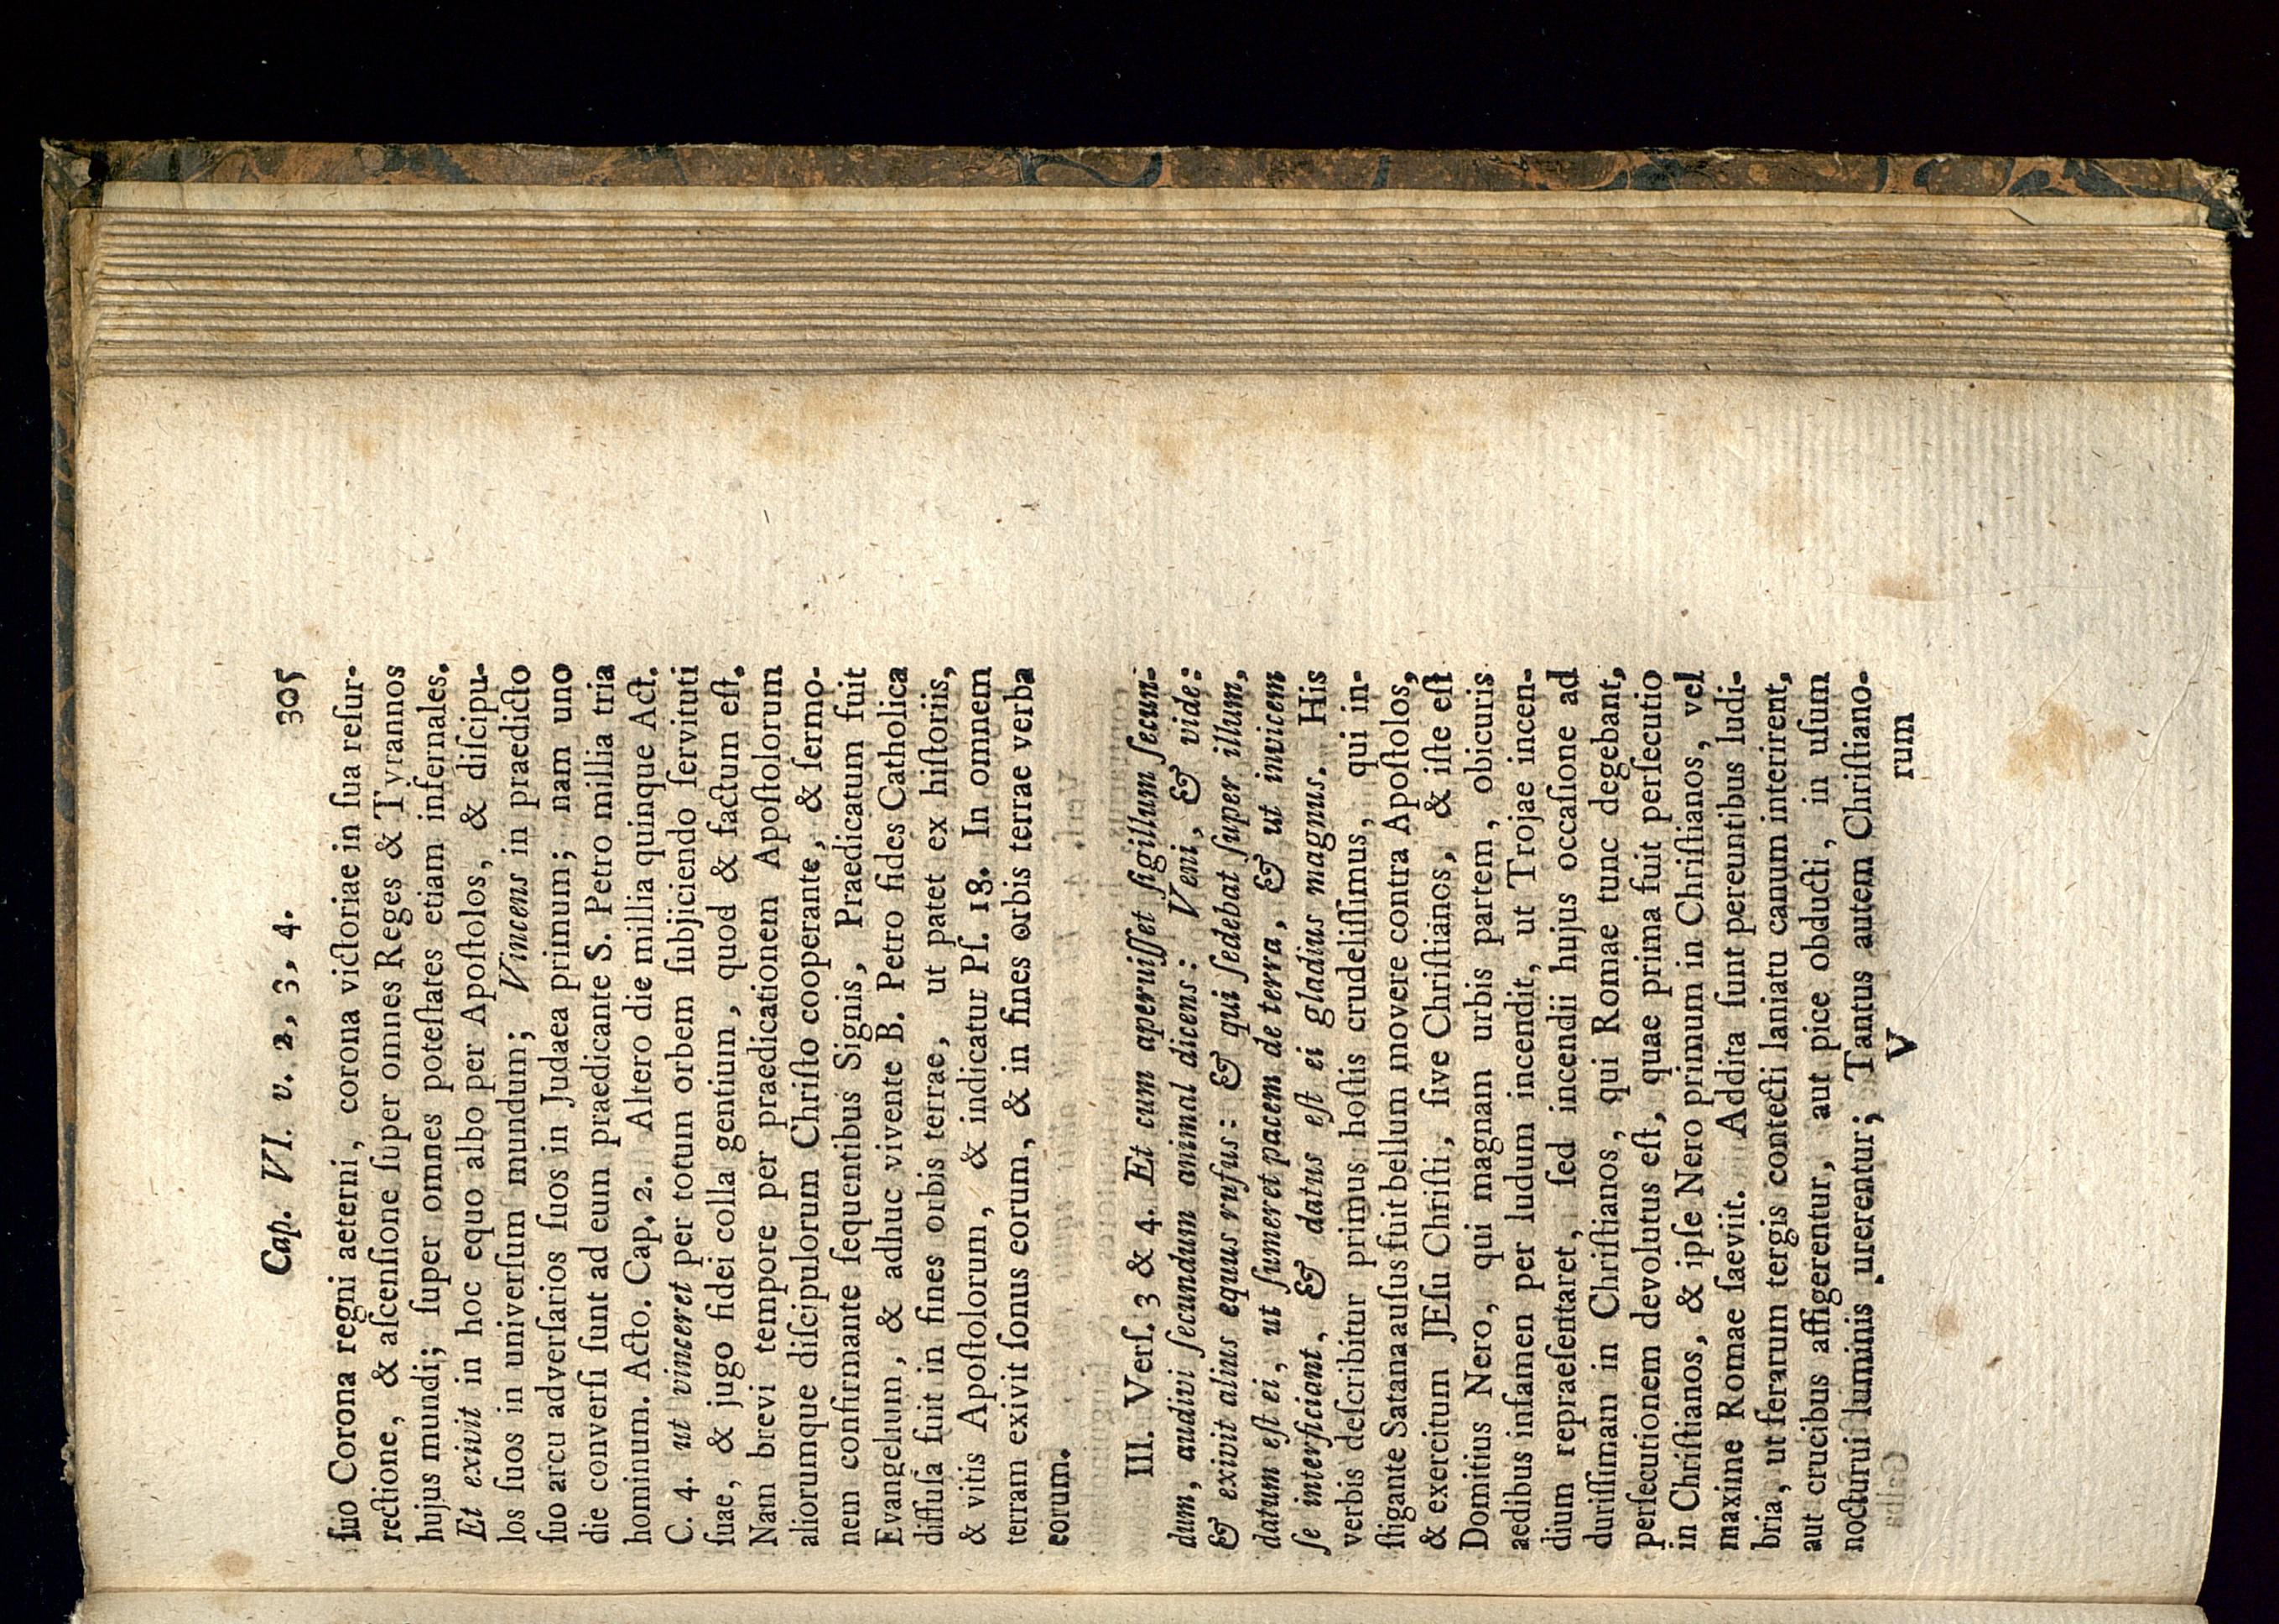 Cap. VI. v. 2, 3, 4. 305
ſuo Corona regni aeterni, corona victoriae in ſua reſur-
rectione, & aſcenſione ſuper omnes Reges & Tyrannos
hujus mundi; ſuper omnes poteſtates etiam infernales.
Et exivit in hoc equo albo per Apoſtolos, & diſcipu-
los ſuos in univerſum mundum; Vincens in praedicto
ſuo arcu adverſarios ſuos in Judaea primum; nam uno
die converſi ſunt ad eum praedicante S. Petro millia tria
hominum. Acto. Cap. 2. Altero die millia quinque Act.
C. 4. ut vinceret per totum orbem ſubjiciendo ſervituti
ſuae, & jugo fidei colla gentium, quod & factum eſt.
Nam brevi tempore per praedicationem Apoſtolorum
aliorumque diſcipulorum Chriſto cooperante, & ſermo-
nem confirmante ſequentibus Signis, Praedicatum fuit
Evangelium, & adhuc vivente B. Petro fides Catholica
diffuſa fuit in fines orbis terrae, ut patet ex hiſtoriis,
& vitis Apoſtolorum, & indicatur Pſ. 18. In omnem
terram exivit ſonus eorum, & in fines orbis terrae verba
eorum.
III. Verſ. 3 & 4. Et cum aperuiſſet ſigillum ſecun-
dum, audivi ſecundum animal dicens: Veni, & vide:
& exivit alius equus rufus: & qui ſedebat ſuper illum,
datum eſt ei, ut ſumeret pacem de terra, & ut invicem
ſe interficiant, & datus eſt ei gladius magnus. His
verbis deſcribitur primus hoſtis crudeliſſimus, qui in-
ſtigante Satana auſus fuit bellum movere contra Apoſtolos,
& exercitum JEſu Chriſti, ſive Chriſtianos, & iſte eſt
Domitius Nero, qui magnam urbis partem, obicuris
aedibus infamen per ludum incendit, ut Trojae incen-
dium repraeſentaret, ſed incendii hujus occaſione ad
duriſſimam in Chriſtianos, qui Romae tunc degebant,
perſecutionem devolutus eſt, quae prima fuit perſecutio
in Chriſtianos, & ipſe Nero primum in Chriſtianos, vel
maxime Romae ſaeviit. Addita ſunt pereuntibus ludi-
bria, ut ferarum tergis contecti laniatu canum interirent,
aut crucibus affigerentur, aut pice obducti, in uſum
nocturui luminis urerentur; Tantus autem Chriſtiano-
V rum